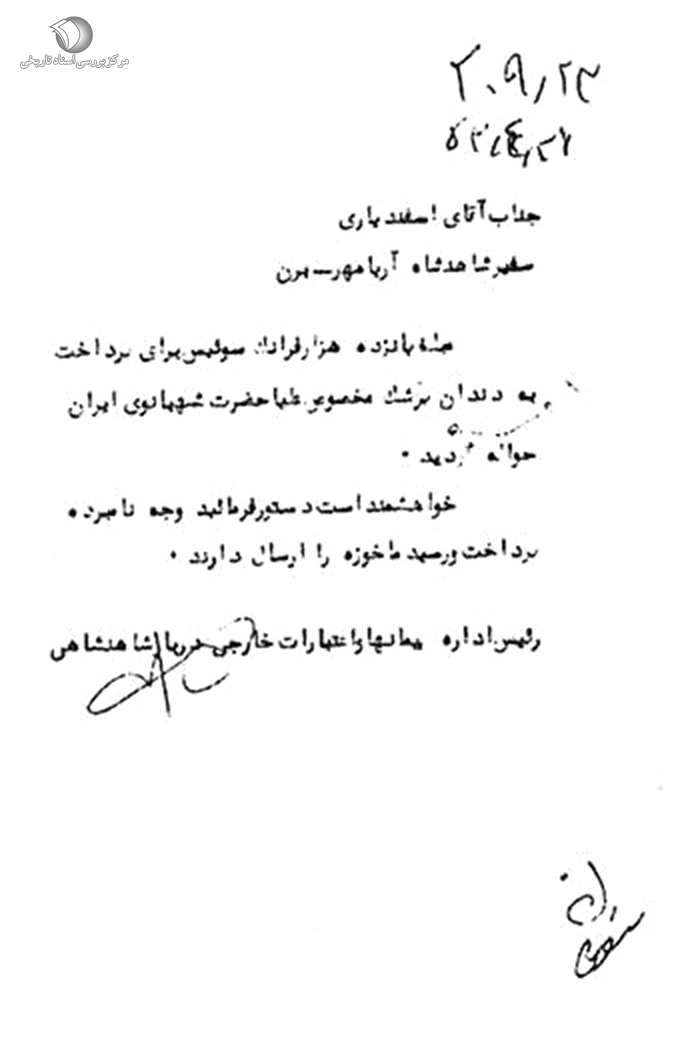 مرکز بررسی اسناد تاریخی
جناب آقای اسفندیاری
سفیر شاهنشاه آریامهر - برن
مبلغ پانزده هزار فرانک سوئیس برای پرداخت
به دندان پزشک مخصوص علیاحضرت شهبانوی ایران
حواله گردید .
خواهشمند است دستور فرمائید وجه نامبرده
پرداخت و رسید ماخوذه را ارسال دارند .
رئیس اداره پیمانها و اعتبارات خارجی دربار شاهنشاهی